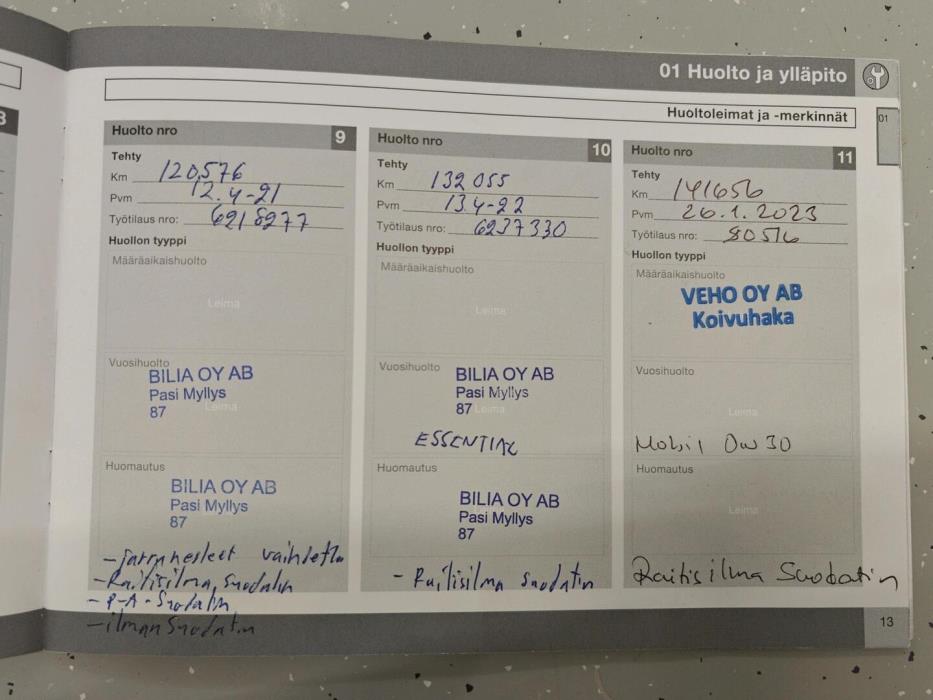 01 Huolto ja ylläpito
Huoltoleimat ja -merkinnät
01
Huolto nro 9
Tehty
Km 120576
Pvm 12.4-21
Työtilaus nro: 6218277
Huollon tyyppi
Määräaikaishuolto
Leima
Vuosihuolto
BILIA OY AB
Pasi Myllys
87 Leima
Huomautus
BILIA OY AB
Pasi Myllys
87
- jarrunesteet vaihdettu
- Raitisilma suodatin
- P-A-Suodatin
- ilman Suodatin
Huolto nro 10
Tehty
Km 132 055
Pvm 13.4-22
Työtilaus nro: 6237330
Huollon tyyppi
Määräaikaishuolto
Leima
Vuosihuolto
BILIA OY AB
Pasi Myllys
87 Leima
ESSENTIAL
Huomautus
BILIA OY AB
Pasi Myllys
87
- Raitisilma suodatin
Huolto nro 11
Tehty
Km 141656
Pvm 26.1.2023
Työtilaus nro: 80516
Huollon tyyppi
Määräaikaishuolto
VEHO OY AB
Koivuhaka
Vuosihuolto
Leima
Mobil 0w30
Huomautus
Leima
Raitis ilma Suodatin
13